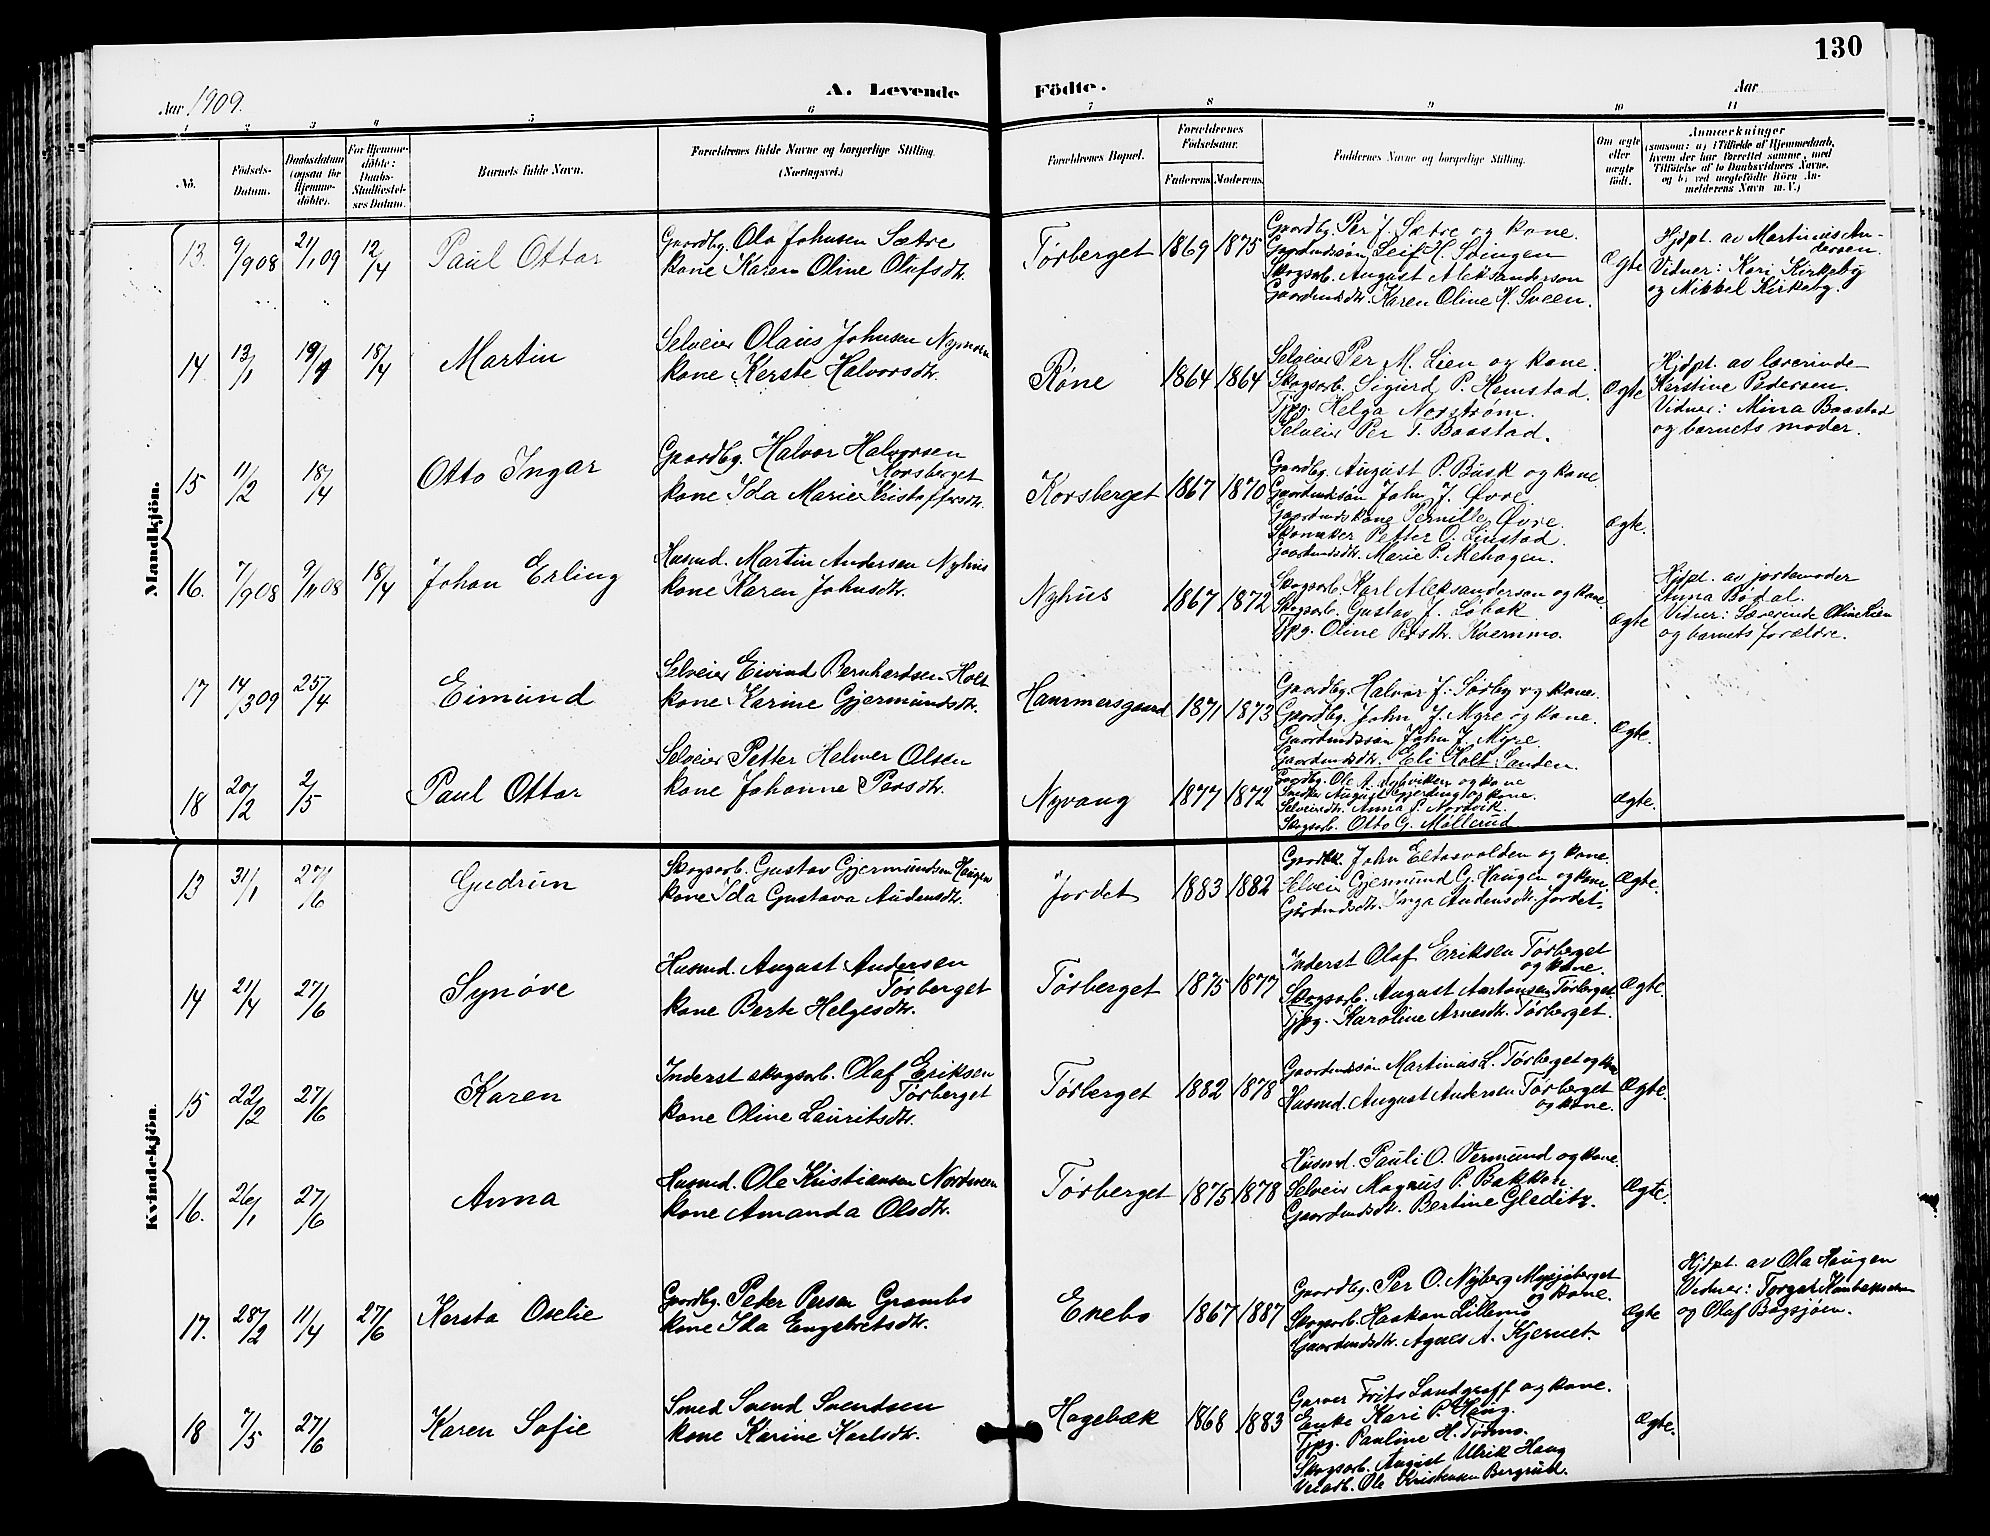 130
Aar 1909.
A. Levende Födte.
Aar
1 2 3 4 5 6 7 8 9 10 11
No.
Födsels-Datum.
Daabsdatum (ogsaa for Hjemmedöbte).
For Hjemmedöbte: Daabs-Stadfæstelses Datum.
Barnets fulde Navn.
Forældrenes fulde Navne og borgerlige Stilling. (Næringsvei.)
Forældrenes Bopæl.
Forældrenes Födselsaar.
Faderens. Moderens.
Faddernes Navne og borgerlige Stilling.
Om ægte eller uægte födt.
Anmærkninger
(saasom: a) i Tilfælde af Hjemmedaab,
hvem der har forrettet samme, med
Tilföielse af to Daabsvidners Navne,
og b) ved uægtefödte Börn Anmelderens Navn m. V.)
Mandkjön.
13 9/9 08 21/1 09 12/4 Paul Ottar
Gaardbg. Ola Johnsen Sætre
kone Karen Oline Olufsdtr.
Tørberget 1869 1875
Gaardbg. Per J. Sætre og kone.
Gaardmdssøn Leif H. Stingen
Skogsarb. August Aleksanderson
Gaardmdsdtr. Karen Oline H. Sveen.
Ægte
Hjdpt. av Martinus Andersen.
Vidner: Kari Kirkeby
og Mikkel Kirkeby.
14 13/1 19/1 18/4 Martin
Selveier Olaus Johnsen Nymoen
kone Kerste Halvorsdtr.
Røne 1864 1864
Selveier Per M. Lien og kone.
Skogsarb. Sigurd P. Hemstad.
Tjpg. Helga Norstrøm.
Selveier Per T. Baastad.
Ægte
Hjdpt. av lærerinde
Kerstine Pedersen.
Vidner: Mina Baastad
og barnets moder.
15 11/2 18/4 Otto Ingar
Gaardbg. Halvor Halvorsen
Korsberget
kone Ida Marie Kristoffersdtr.
Korsberget 1867 1870
Gaardbg. August P. Busk og kone.
Gaardmdssøn John J. Øvre.
Gaardmds kone Pernille Øvre.
Skomaker Petter O. Linstad.
Gaardmdsdtr. Marie P. Mehagen.
Ægte.
16. 7/9 08 9/11 08 18/4 Johan Erling
Husmd. Martin Andersen Nyhus
kone Karen Johnsdtr.
Nyhus 1867 1872
Skogsarb. Karl Aleksanderson og kone.
Skogsarb. Gustav J. Løbak.
Tjpg. Oline Persdtr. Kvernmo.
Ægte
Hjdpt. av jordemoder
Anna Bødal.
Vidner: Lærerinde Oline Lien
og barnets forældre.
17 14/3 09 25/4 Eimund
Selveier Eivind Bernhardsen Holt
kone Karine Gjermundsdtr.
Hammersgaard 1871 1873
Gaardbg. Halvor J. Sørby og kone.
Gaardbg. John J. Myre og kone.
Gaardmdssøn John J. Myre.
Gaardmdsdtr. Eli Holt Sanden.
Ægte.
18 20/2 2/5 Paul Ottar
Selveier Petter Helmer Olsen
kone Johanne Persdtr.
Nyvang 1877 1872
Gaardbg. Ole A. Nybviken og kone
Smeder August Gjerding og kone.
Selveierdtr. Anna P. Nordvik.
Skogsarb. Otto G. Møllerud
Ægte.
Kvindekjön.
13 31/1 27/6 Gudrun
Skogsarb. Gustav Gjermundsen Haugen
kone Ida Gustava Audensdtr.
Jordet 1883 1882
Gaardbr. John Eltasvolden og kone.
Selveier Gjermund G. Haugen og kone.
Gårdmdsdtr. Inga Audensdtr. Jordet.
Ægte.
14 21/4 27/6 Synøve
Husmd. August Andersen
Tørberget
kone Berte Helgesdtr.
Tørberget 1875 1877
Inderst Olaf Eriksen Tørberget
og kone.
Skogsarb. August Martensen Tørberget.
Tjpg. Karoline Arnesdtr. Tørberget.
Ægte.
15 22/2 27/6 Karen
Inderst skogsarb. Olaf Eriksen
Tørberget
kone Oline Lauritsdtr.
Tørberget 1882 1878
Gaardmdssøn Martinus L. Tørberget og kone
Husmd. August Andersen Tørberget
og kone.
Ægte.
16. 26/1 27/6 Anna
Husmd. Ole Kristiansen Nordmoen
kone Amanda Olsdtr.
Tørberget 1875 1878
Husmd. Pauli O. Vermund og kone.
Selveier Magnus P. Bakken.
Gaardmdsdtr. Bertine Gleditz.
Ægte.
17. 28/2 11/4 27/6 Kersta Oselie
Gaardbg. Peter Persen Grambo
kone Ida Engebretsdtr.
Enebo 1867 1887
Gaardbg. Per O. Nyberg Mysjøberget
og kone.
Skogsarb. Haakon Lillemo
Gaardmdsdtr. Agnes A. Kjernet.
Ægte
Hjdpt. av Ola Haugen
Vidner: Torger
og Olaf Bogsjøen.
18 7/5 27/6 Karen Sofie
Smed Svend Svendsen
kone Karine Karlsdtr.
Hagebæk 1868 1883
Garver Frits Landgraff og kone.
Enke Kari P. Haug.
Tjpg. Pauline H. Tørmo.
Skogsarb. August Ulrik Haug
Veiarb. Ole Kristensen Bergrud.
Ægte.